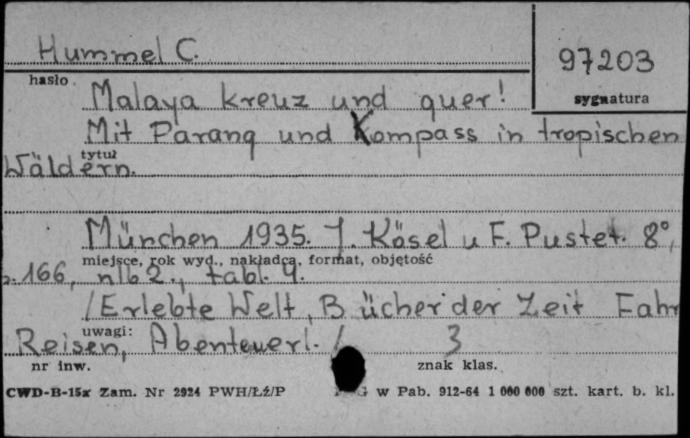 Hummel C.
97203
hasło
sygnatura
Malaya kreuz und quer!
Mit Parang und Kompass in tropischen
tytuł
Wäldern.
München 1935. J. Kösel u F. Pustet. 8°,
miejsce, rok wyd., nakładca, format, objętość
s. 166, nlb 2., tabl. 4.
/Erlebte Welt, Bücher der Zeit Fahr
uwagi:
Reisen, Abenteuerl./ 3
nr inw.
znak klas.
CWD-B-15x Zam. Nr 2924 PWH/Łź/P
w Pab. 912-64 1 000 000 szt. kart. b. kl.